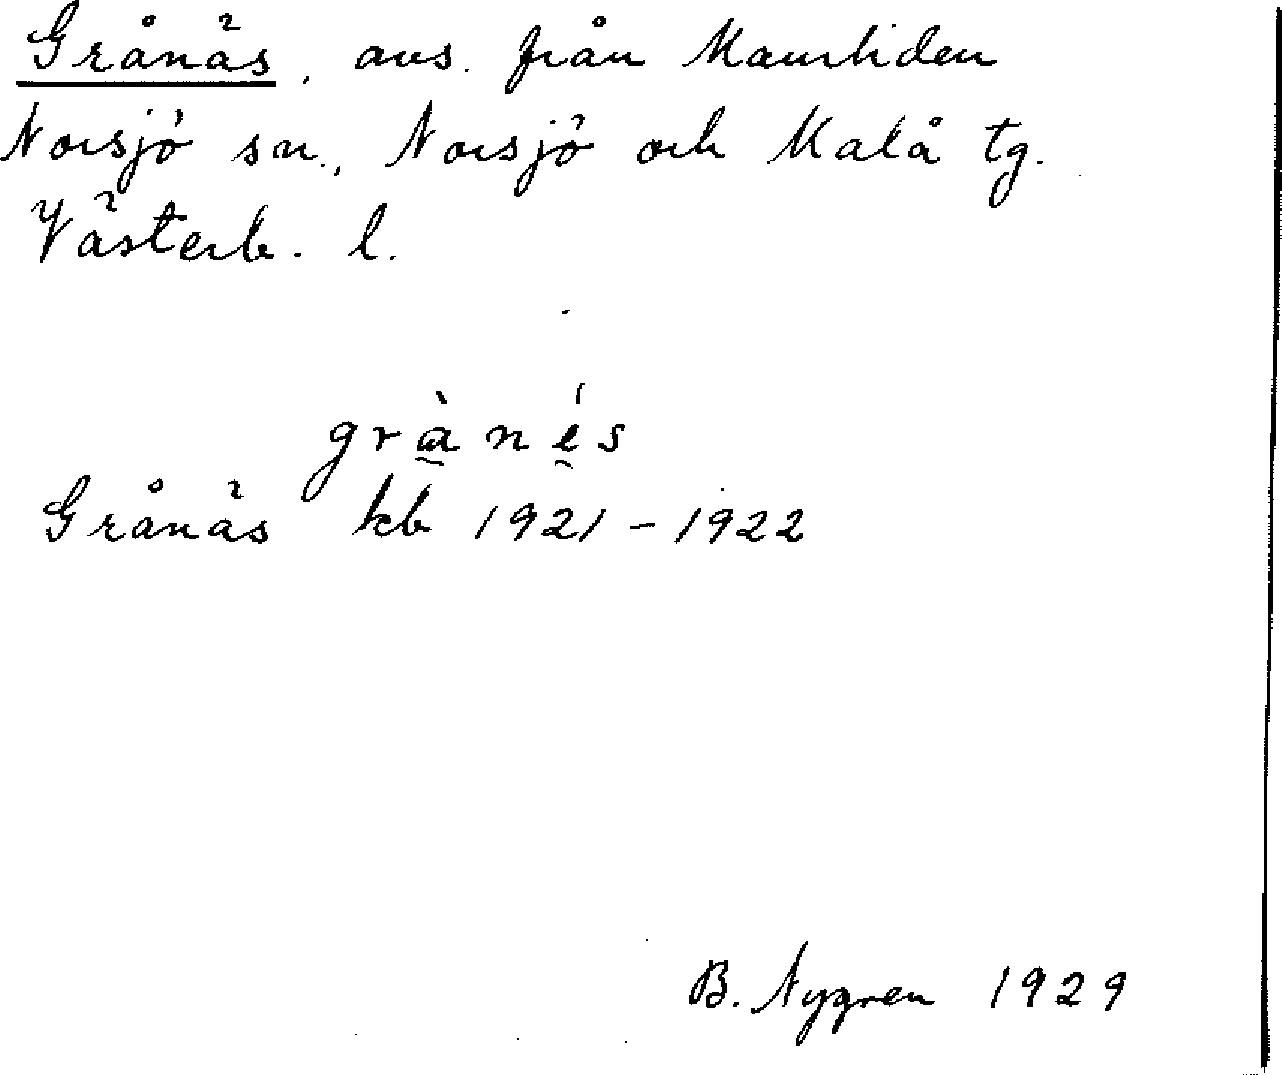 Grånäs, avs. från Maurliden
Norsjö sn., Norsjö och Malå tg.
Västerb. l.
grànés
Grånäs kb 1921-1922
B. Nygren 1929